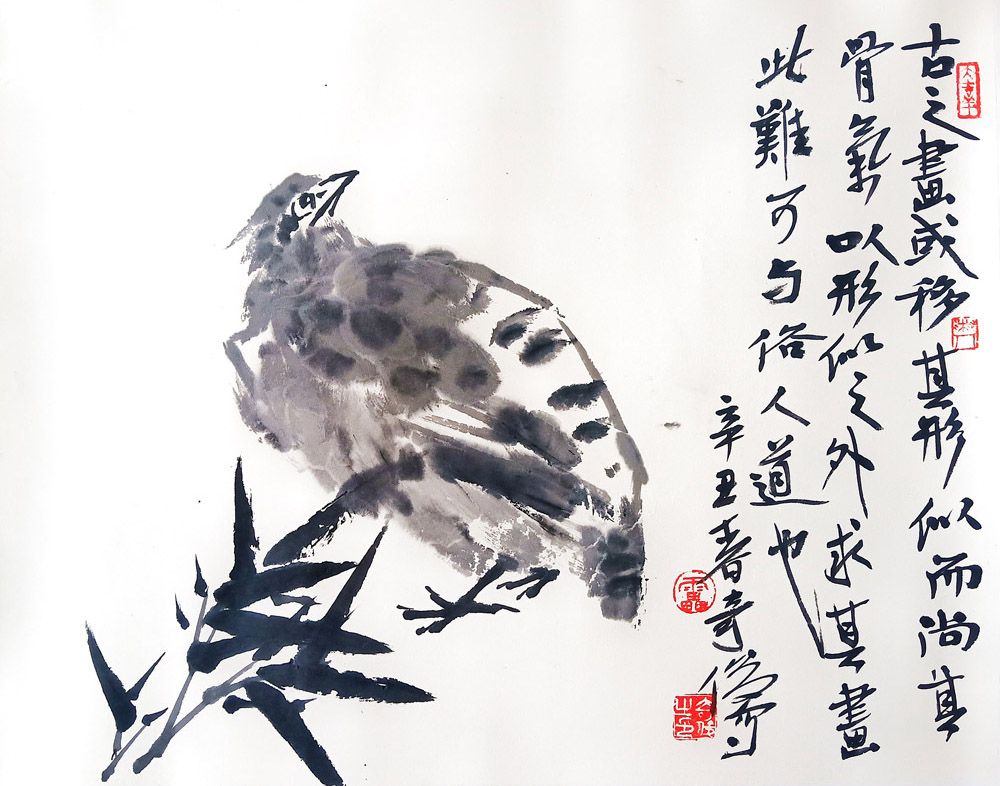 古之畫或移其形似而尚其
骨氣以形似之外求其畫
此難可与俗人道也
辛丑春奇